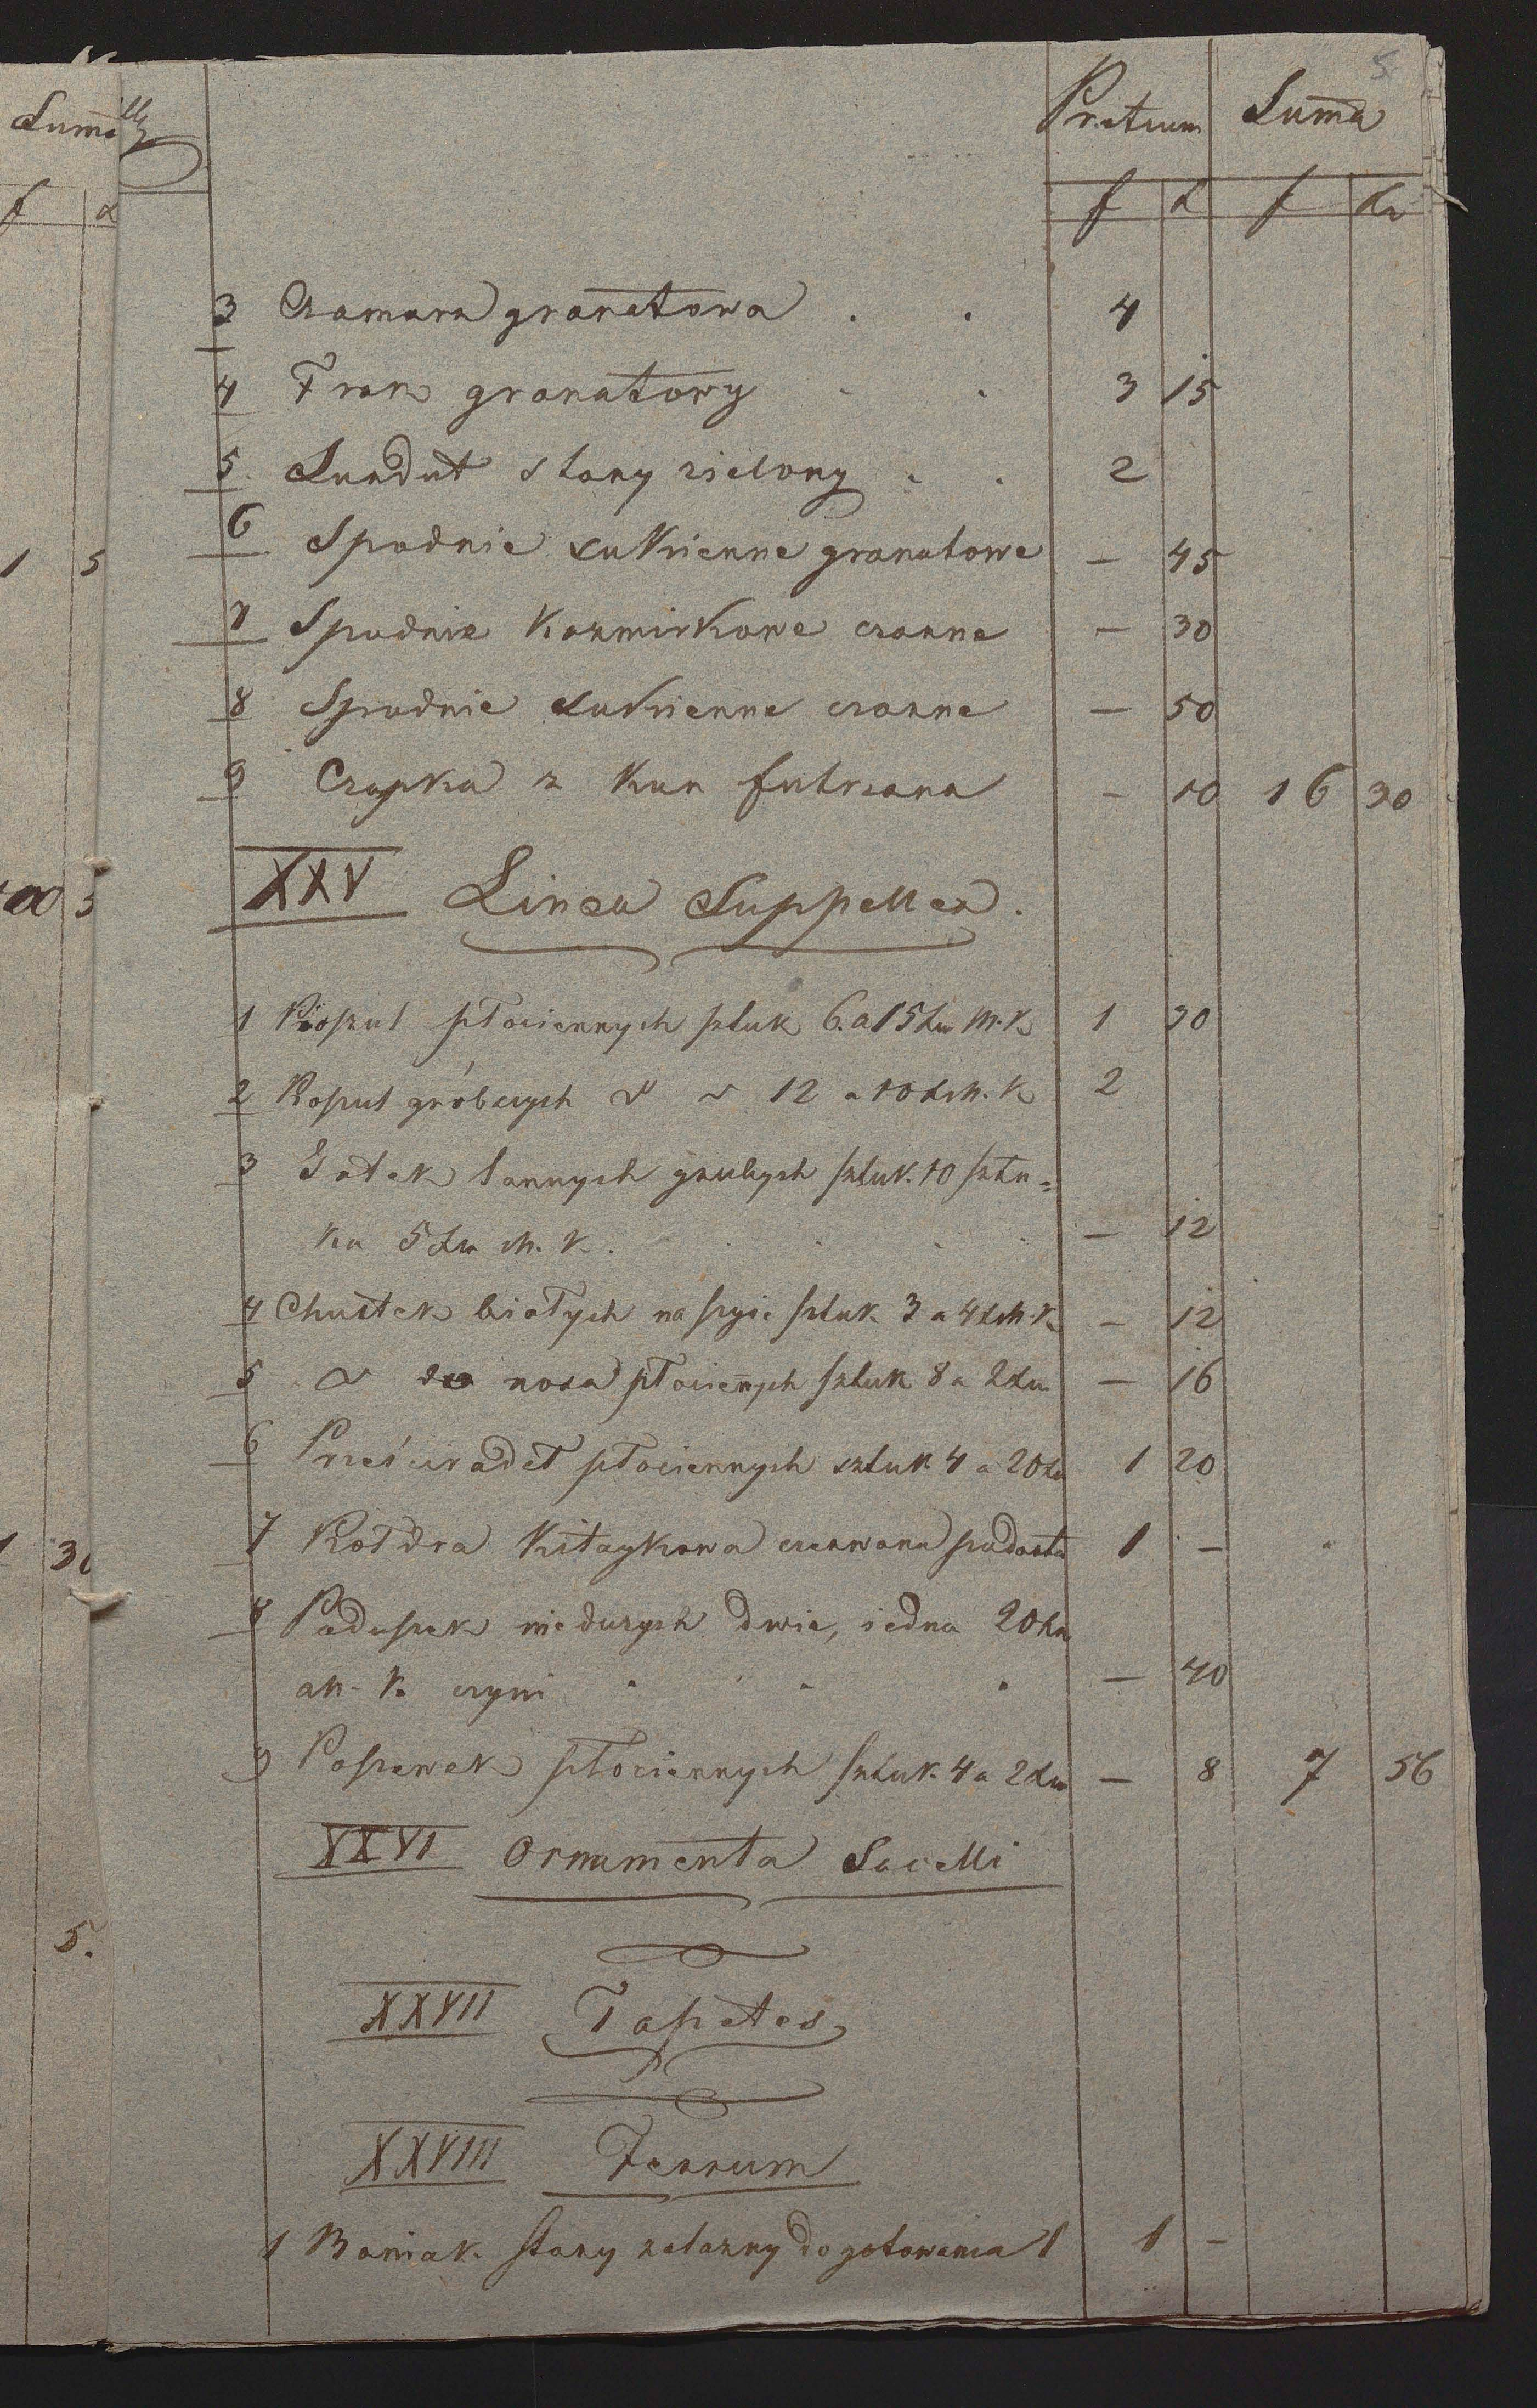 5
Pretium Suma
f x f xr
3 Czamara granatowa . . 4
4 Frak granatowy . . 3 15
5. Surdut stary zielony . . 2
6 Spodnie sukienne granatowe — 45
7 Spodnie Kazmirkowe czarne — 30
8 Spodnie sukienne czarne — 50
9 Czapka z kun futrzana — 10 16 30
XXV Linea Suppellex.
1 Koszul płociennych sztuk 6. a 15 xr M. K. 1 30
2 Koszul gróbszych 12 a 10 x M. K 2
3 Gatek grubych sztuk. 10 sztu=
ka 5 xr M. K. . . . — 12
4 Chustek białych na szyie sztuk. 3 a 4 x M. K. — 12
5 do nosa płociennych sztuk 8 a 2 xr — 16
6 Prześcieradeł płociennych sztuk 4 a 20 xr 1 20
7 Kołdra Kitaykowa czerwona podarta 1 —
8 Poduszek niedużych dwie, iedna 20 xr
M. K. czyni . . . — 40
9 Poszewek płociennych sztuk. 4 a 2 xr — 8 7 56
XXVI Ornamenta Sacelli
XXVII Tapetes
XXVIII Ferrum
1 Baniak stary zelazny do gotowania 1 1 —
Suma
f x
1 5
1 30
5.